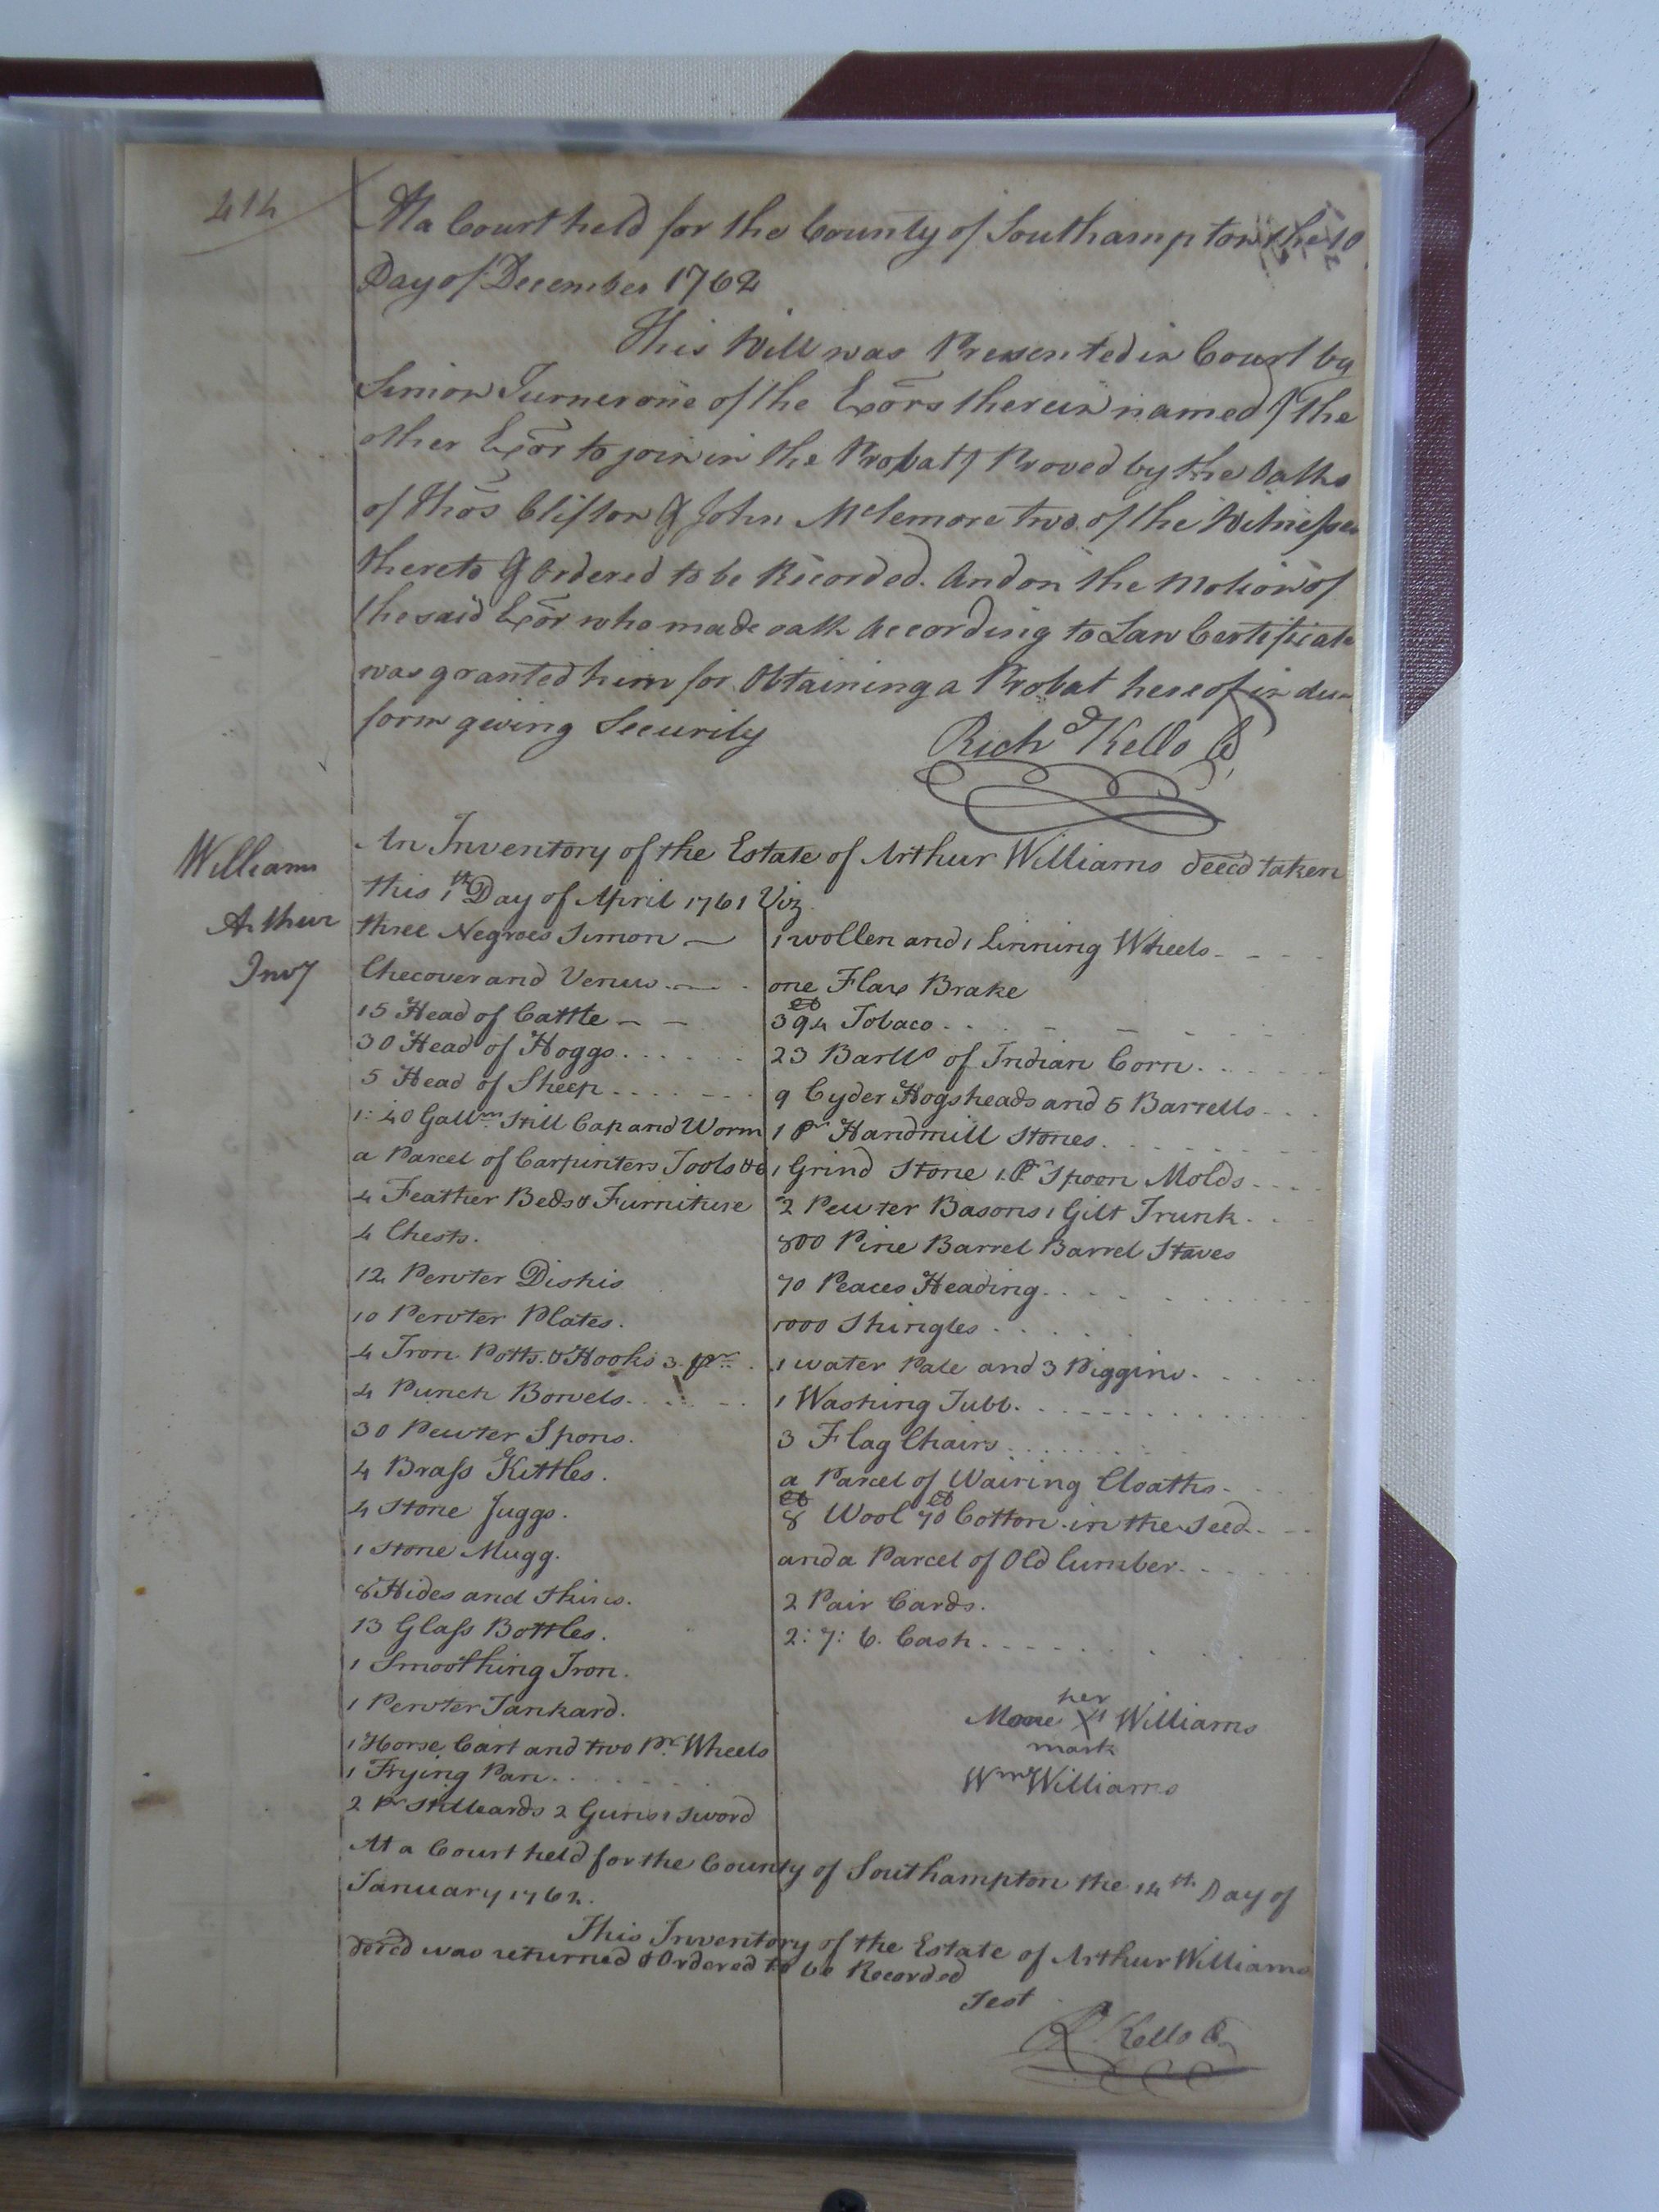 414
At a Court held for the County of Southampton the 10
Day of December 1762
This Will was Presented in Court by
Simon Turner one of the Exōrs therein named & the
other Exōr to join in the Probat & Proved by the Oaths
of Thōs Clifton & John Mclemore two of the Witnesses
thereto & Ordered to be Recorded. And on the Motion of
the said Exōr who made oath According to Law Certificate
was granted him for Obtaining a Probat hereof in due
form giving Security
Richd Kello C
Williams
Arthur
Invy
An Inventory of the Estate of Arthur Williams decd taken
this 1th Day of April 1761 Viz
three Negroes Simon
Checover and Venus
15 Head of Cattle
30 Head of Hoggs
5 Head of Sheep
1: 40 Galln Still Cap and Worm
a Parcel of Carpinters Tools &c
4 Feather Beds & Furniture
4 Chests.
12 Pewter Dishis
10 Pewter Plates.
4 Iron Potts. & Hooks 3 pr
4 Punch Bowels.
30 Pewter Spons.
4 Brass Kittles.
4 Stone Juggs.
1 Stone Mugg.
8 Hides and Skins.
13 Glass Bottles.
1 Smoothing Iron.
1 Pewter Tankard.
1 Horse Cart and two Pr Wheels
1 Frying Pan.
2 Pr Stilleards 2 Guns 1 Sword
1 wollen and 1 Linning Wheels
one Flax Brake
394 lb Tobaco
23 Barlls of Indian Corn.
9 Cyder Hogsheads and 5 Barrells
1 Pr Handmill Stones.
1 Grind Stone 1 Pr Spoon Molds
2 Pewter Basons 1 Gilt Trunk.
800 Pine Barrel Barrel Staves
70 Peaces Heading.
1000 Shingles
1 water Pale and 3 Piggins.
1 Washing Tubb.
3 Flag Chairs
a Parcel of Wairing Cloaths
8 lb Wool 70 lb Cotton in the Seed
and a Parcel of Old Lumber
2 Pair Cards.
2: 7: 6. Cash
her
X Williams
mark
Wm Williams
At a Court held for the County of Southampton the 14th Day of
January 1762.
This Inventory of the Estate of Arthur Williams
decd was returned & Ordered to be Recorded
Test
R Kello C